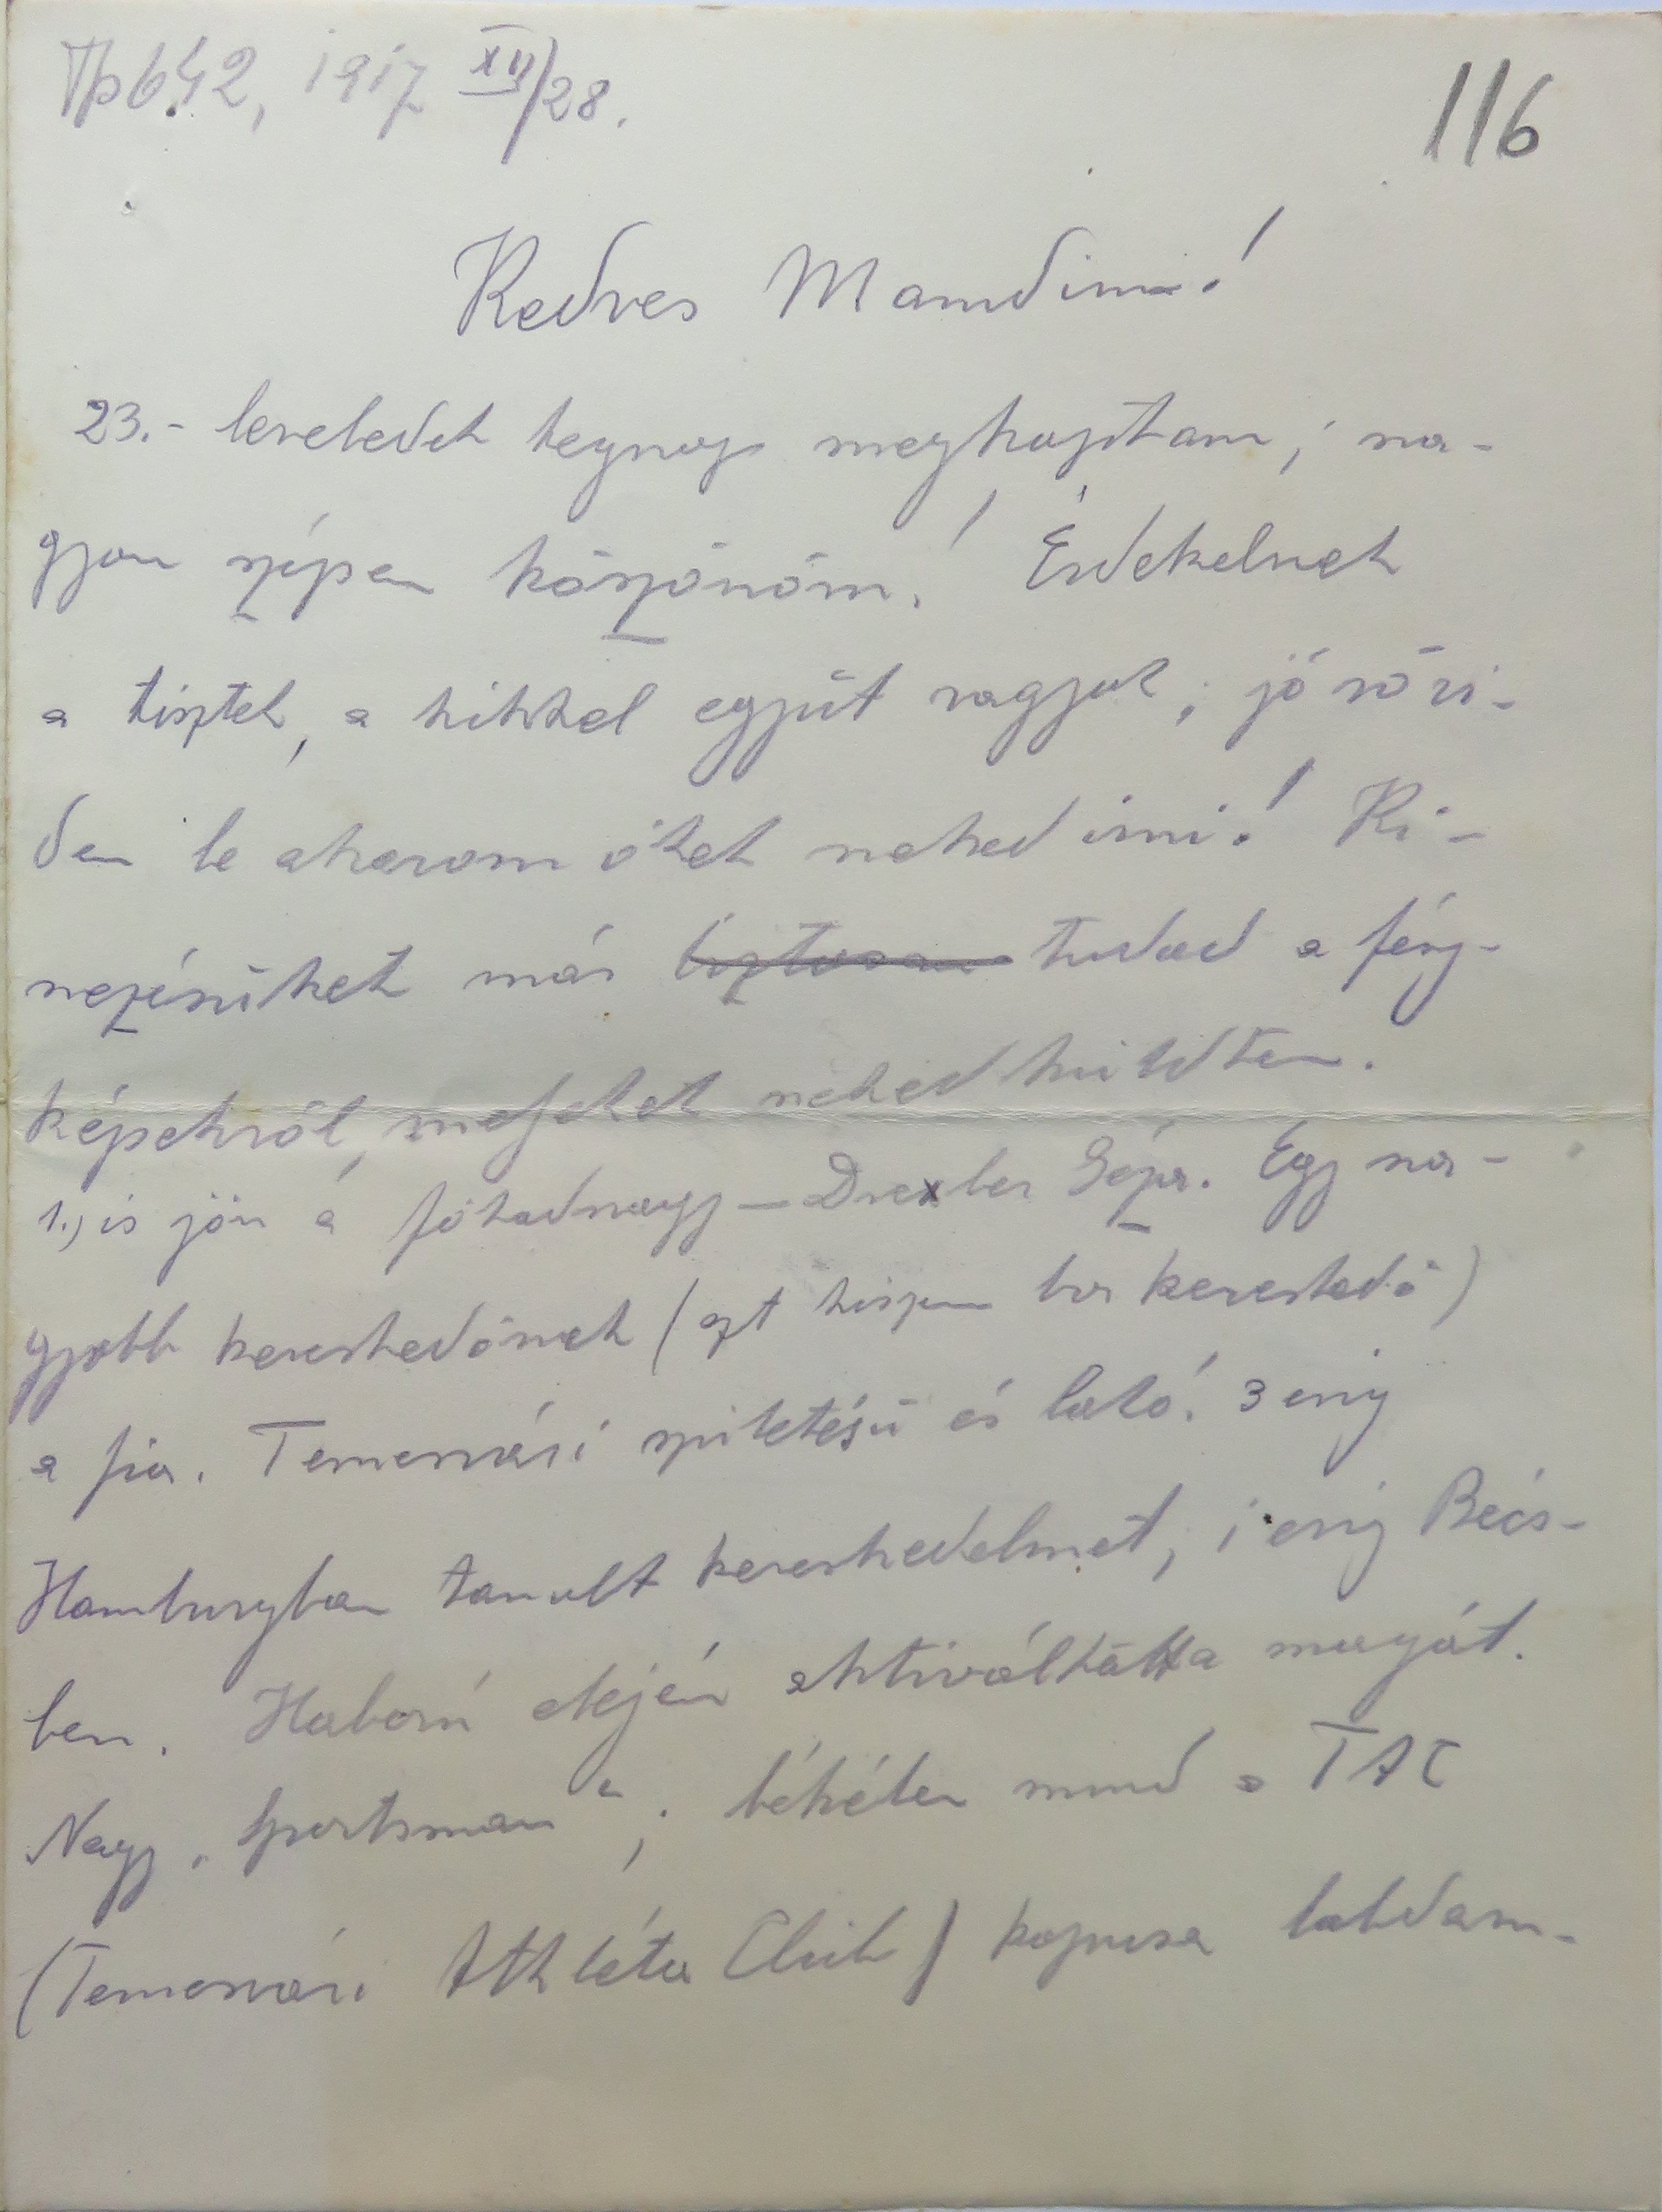 Tp 642, 1917 XII/28.
116
Kedves Mamdim!
23.- leveledet tegnap megkaptam; na-
gyon szépen köszönöm! Érdekelnek
a tisztek, a kikkel együt vagyok; jó rövi-
den le akarom őket neked irni! Ki-
nezésüket már biztosan tudod a fény-
képekről, melyeket neked küldtem.
1.) is jön a főhadnagy – Drexler Géza. Egy na-
gyobb kereskedőnek (azt hiszem bor kereskedő)
a fia. Temesvári születésű és lakó. 3 évig
Hamburgban tanult kereskedelmet, 1 évig Bécs-
ben. Háború elején aktiváltatta magát.
Nagy „Sportsman“; békében mind a TAC
(Temesvári Athléta Club) kapusa labdam-